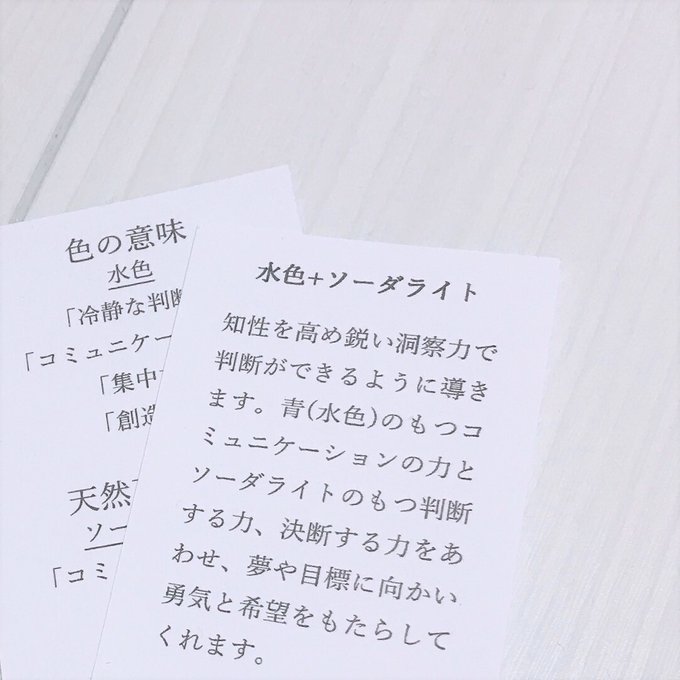 色の意味
水色
「冷静な判断
「コミュニケー
「集中
「創造
天然
ソー
「コミ
水色+ソーダライト
知性を高め鋭い洞察力で
判断ができるように導き
ます。青(水色)のもつコ
ミュニケーションの力と
ソーダライトのもつ判断
する力、決断する力をあ
わせ、夢や目標に向かい
勇気と希望をもたらして
くれます。